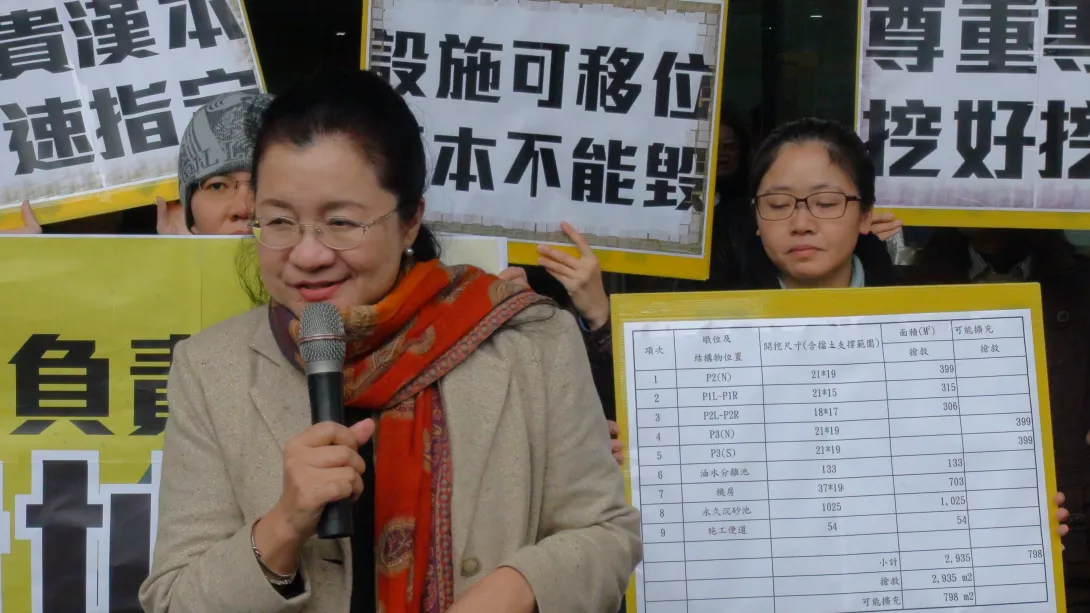 貴漢本
速指定
設施可移位
漢本不能毀
尊重專
挖好挖
負責
項次 墩位及結構物位置 開挖尺寸(含擋土支撐範圍) 面積(M²) 可能擴充
搶救 搶救
1 P2(N) 21*19 399
2 P1L~P1R 21*15 315
3 P2L~P2R 18*17 306
4 P3(N) 21*19 399
5 P3(S) 21*19 399
6 油水分離池 133 133
7 機房 37*19 703
8 永久沉砂池 1025 1,025
9 施工便道 54 54
小計 2,935 798
搶救 2,935 m2
可能擴充 798 m2